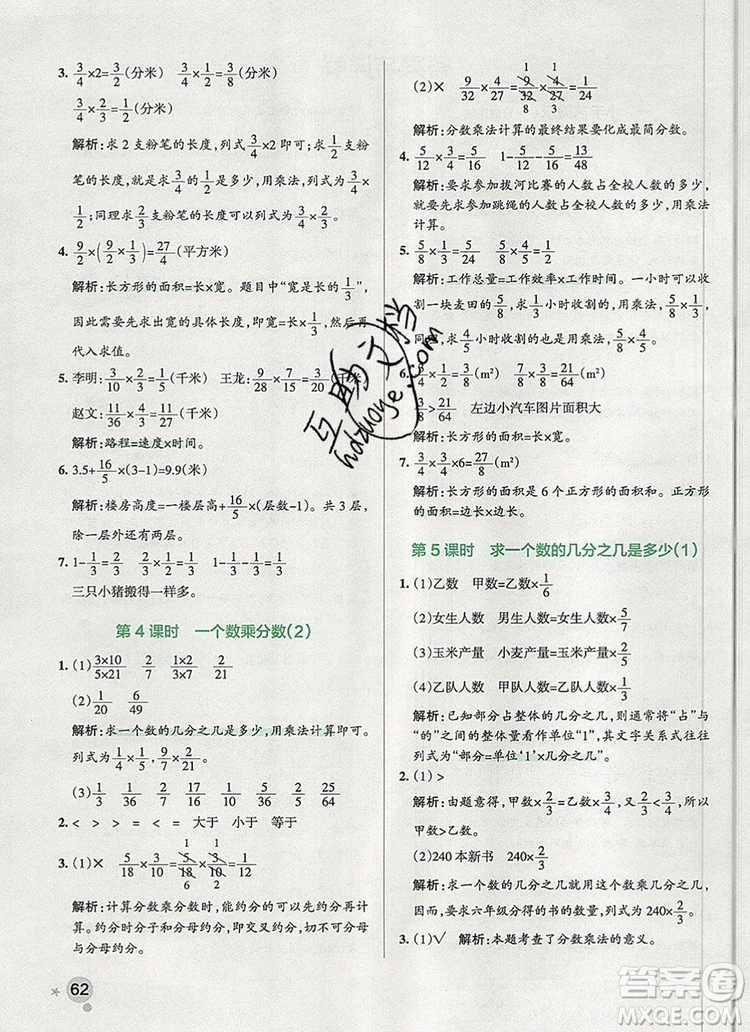 3. 3/4×2=3/2(分米) 3/4×1/2=3/8(分米)
3/4×2/3=1/2(分米)
解析:求2支粉笔的长度,列式3/4×2即可;求1/2支粉
笔的长度,就是求3/4的1/2是多少,用乘法,列式为3/4×
1/2;同理求2/3支粉笔的长度可以列式为3/4×2/3。
4. 9/2×(9/2×1/3)=27/4(平方米)
解析:长方形的面积=长×宽。题目中“宽是长的1/3”,
因此需要先求出宽的具体长度,即9/2×1/3,然后再代
入求值。
5. 李明:3/10×5/2=3/4(千米) 王龙:9/28×7/15=3/20(千米)
赵文:11/36×4/3=11/27(千米)
解析:路程=速度×时间。
6. 3.5+16/5×(3-1)=9.9(米)
解析:楼房高度=一层楼高+16/5×(层数-1)。共3层,
除一层外还有两层。
7. 1-1/3=2/3 2/3×1/2=1/3 2/3-1/3=1/3
三只小猪搬得一样多。
第4课时 一个数乘分数(2)
1. (1)3×10/5×21 2/7 1×2/3×7 2/21
(2)1/20 6/49
解析:求一个数的几分之几是多少,用乘法计算即可。
列式为1/4×1/5,3/7×2/7。
(3)1/21 2/7 17/16 1/10 5/8 27/64
2. < > > = < = 大于 小于 等于
3. (1)× 5/18×3/10=5/18×3/10=1/12
1 1
6 2
解析:计算分数乘分数时,能约分的可以先约分再计
算。约分时分子和分母约分,即交叉约分,不能分子与
分子约分,分母与分母约分。
62
(2)× 9/32×4/27=9/32×4/27=1/24
1 1
8 3
解析:分数乘法计算的最终结果要化成最简分数。
4. 5/12×3/4=5/16 1-5/12-5/16=13/48
解析:要求参加拔河比赛的人数占全校人数的多少,
就是要求参加跳绳的人数占全校人数的多少,用乘法
计算。
5. 5/8×1/3=5/24 5/8×4/5=1/2
解析:工作总量=工作效率×工作时间。一小时可以收
割一块麦田的5/8,求1/3小时收割的用乘法,列式为5/8×
1/3。同理,求4/5小时收割的也是用乘法,列式为5/8×4/5。
6. 1/2×3/4=3/8(m²) 7/8×3/8=21/64(m²)
3/8>21/64 左边小汽车图片面积大
解析:长方形的面积=长×宽。
7. 3/4×3/4×6=27/8(m²)
解析:长方形的面积是6个正方形的面积。正方形的
面积=边长×边长。
第5课时 求一个数的几分之几是多少(1)
1. (1)乙数 甲数=乙数×1/6
(2)女生人数 男生人数=女生人数×5/7
(3)玉米产量 小麦产量=玉米产量×5/8
(4)乙队人数 甲队人数=乙队人数×1/4
解析:已知部分占整体的几分之几,则通常将“占”与
“的”之间的整体量看作单位“1”,其文字关系式往往
列式为“部分=单位‘1’×几分之几”。
2. (1)>
解析:由题意得,甲数×2/3=乙数×3/4,因为2/3<3/4,所以
甲数>乙数。
(2)240本新书 240×2/3
解析:求一个数的几分之几是多少,用乘法计算,
因而,要求六年级分得的书的数量,列式为240×2/3。
3. (1)√ 解析:本题考查了分数乘法的意义。
互助文档
hdzuoye.com
答案圈
MXQE.COM